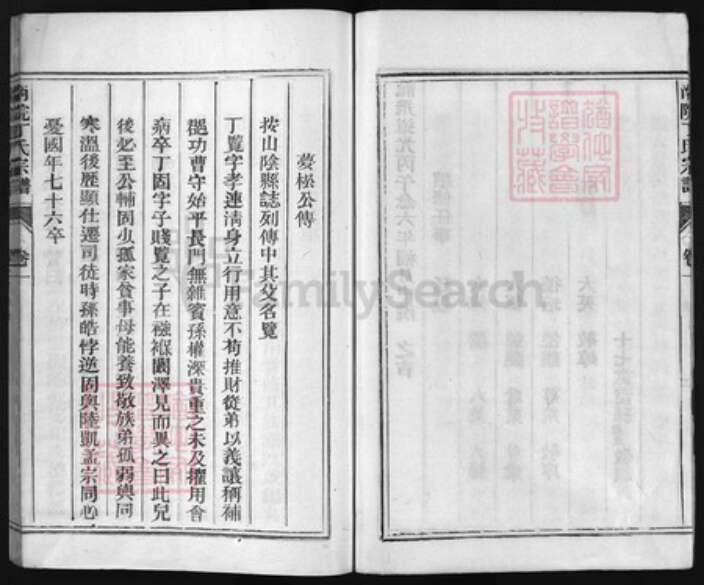 南院丁氏宗譜
卷一
夢松公傳
按山陰縣誌列傳中其父名覽
丁覽字孝連清身立行用意不苟推財從弟以義讓稱補
郡功曹守始平長門無雜賓孫權深貴重之未及擢用會
病卒丁固字子賤覽之子在襁褓闞澤見而異之曰此兒
後必至公輔固少孤家貧事母能養致敬族弟孤弱與同
寒溫後歷顯仕遷司徒時孫皓悖逆固與陸凱孟宗同心
憂國年七十六卒
南院丁氏宗譜
卷一
FamilySearch